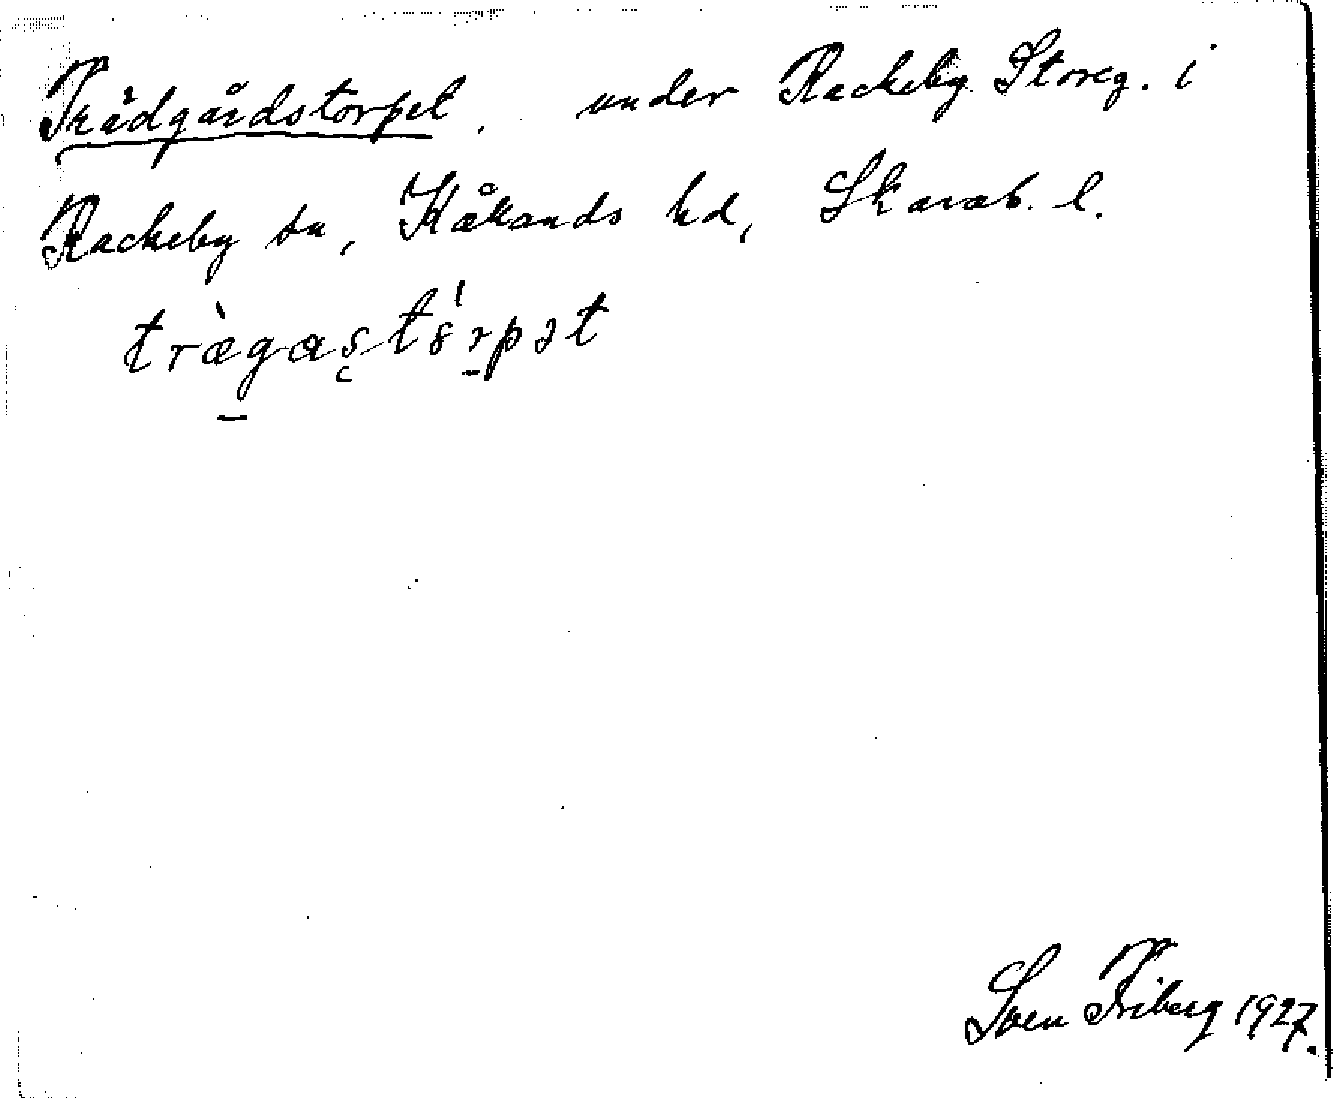 Trädgårdstorpet. under Rackeby Storeg. i
Rackeby sn, Kållands hd, Skarab. l.
trægastorpət
Sven Friberg 1927.